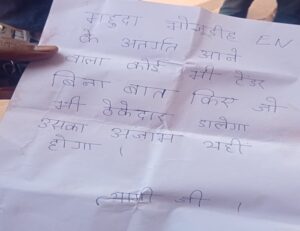 माहुदा मोराडीह EN
के अतर्गत आने
वाला कोई भी टेंडर
बिना बात किए जो
भी ठेकेदार डालेगा
उसका अजाम यही
होगा ।
जी ।